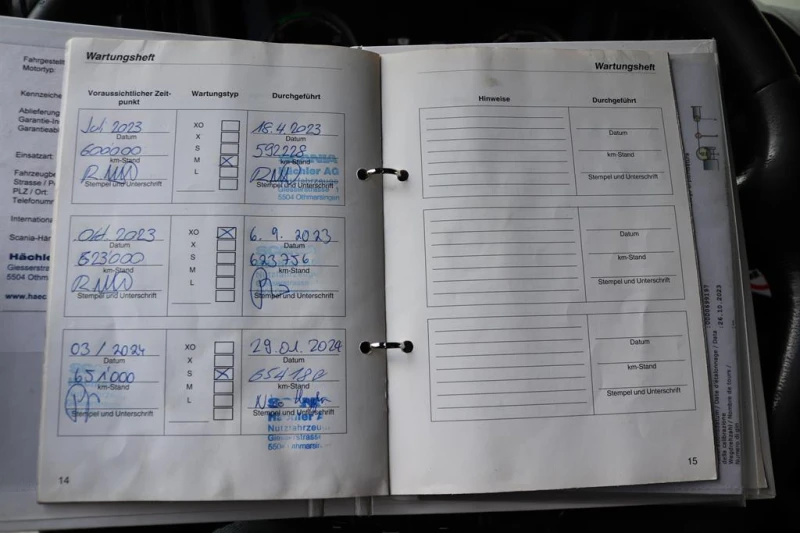 Wartungsheft
Voraussichtlicher Zeit-
punkt
Wartungstyp
Durchgeführt
Jul 2023
Datum
600000
km-Stand
Stempel und Unterschrift
XO
X
S
M
L
18.4.2023
Datum
592228
km-Stand
Hächler AG
Nutzfahrzeuge
Stempel und Unterschrift
Giesserstrasse 1
5504 Othmarsingen
Okt 2023
Datum
623000
km-Stand
Stempel und Unterschrift
XO
X
S
M
L
6.9.2023
Datum
623756
km-Stand
Stempel und Unterschrift
03/2024
Datum
651'000
km-Stand
Stempel und Unterschrift
XO
X
S
M
L
29.01.2024
Datum
km-Stand
Stempel und Unterschrift
Nutzfahrzeu
Giesserstrasse
14
Wartungsheft
Hinweise
Durchgeführt
Datum
km-Stand
Stempel und Unterschrift
Datum
km-Stand
Stempel und Unterschrift
Datum
km-Stand
Stempel und Unterschrift
15
Fahrgestell
Motortyp:
Kennzeiche
Ablieferung
Garantie-In
Garantieabl
Einsatzart:
Fahrzeugbe
Strasse / Po
PLZ / Ort:
Telefonumm
International
Scania-Hän
Hächle
Giesserstr
5504 Othm
www.haec
26.10.2023